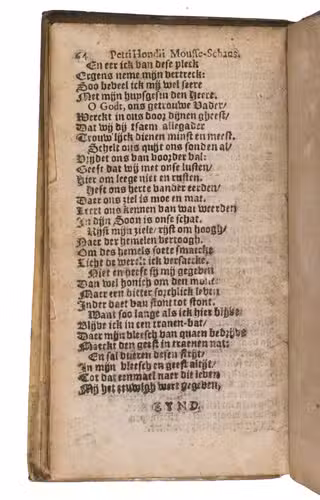 64 Petri Hondii Mouffe-Schans.
En eer ick van dese pleck
Ergens neme mijn vertreck:
Soo beveel ick mij wel seere
Met mijn huysgesin den Heere.
O Godt, ons getrouwe Vader/
Werckt in ons door dijnen gheest/
Dat wij dij t'saem allegader
Trouwlijck dienen minst en meest.
Schelt ons quijt ons sonden al/
Vrijdet ons van boorder val:
Geeft dat wij met onse lusten/
Hier om leege niet en rusten.
Heft ons herte van der eerden/
Daer ons ziel is moe en mat.
Leert ons kennen van wat weerden
In dijn Soon is onse schat.
Rijst mijn ziele/ rijst om hoogh/
Naer der hemelen vertoogh.
Om des hemels soete smaecke
Licht de werelt ick versaecke.
Niet en heeft sij mij gegeven
Dan wel honich om den mont:
Maer een bitter sorchlick leven
Inder daet van stont tot stont.
Want soo lange als ick hier blijve
Blijve ick in een tranen-bat/
Daer mijn vleesch van quaen bedrijve
Maeckt den geest in traenen nat:
En sal dueren desen strijt/
In mijn vleesch en geest altijt/
Tot dat eenmael naer dit leven
Mij het eeuwigh wert gegeven.
EYND.